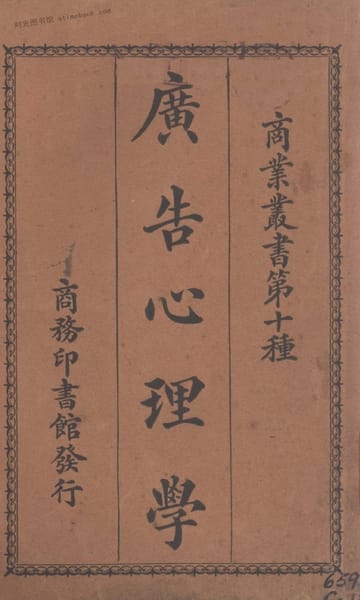 商業叢書第十種
廣告心理學
商務印書館發行
时光图书馆 atimebook.com
659